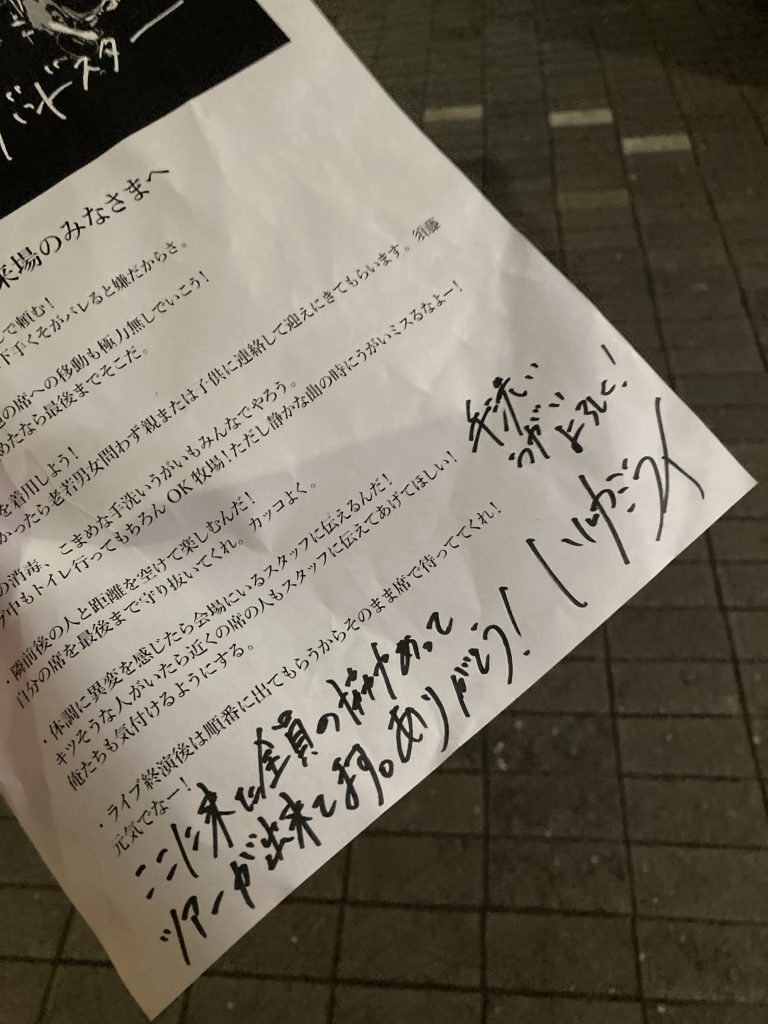 バンドスター
来場のみなさまへ
で頼む！
下手くそがバレると嫌だからさ。
の席への移動も極力無しでいこう！
めたなら最後までそこだ。
を着用しよう！
かったら老若男女問わず親または子供に連絡して迎えにきてもらいます。須藤
の消毒、こまめな手洗いうがいもみんなでやろう。
中もトイレ行ってもちろんOK牧場！ただし静かな曲の時にうがいミスるなよー！
・隣前後の人と距離を空けて楽しむんだ！
自分の席を最後まで守り抜いてくれ。カッコよく。
・体調に異変を感じたら会場にいるスタッフに伝えるんだ！
キツそうな人がいたら近くの席の人もスタッフに伝えてあげてほしい！
俺たちも気付けるようにする。
・ライブ終演後は順番に出てもらうからそのまま席で待っててくれ！
元気でなー！
手洗い
うがい
よろしく！
ここに来た全員の
ツアーが出来てます。ありがとう！